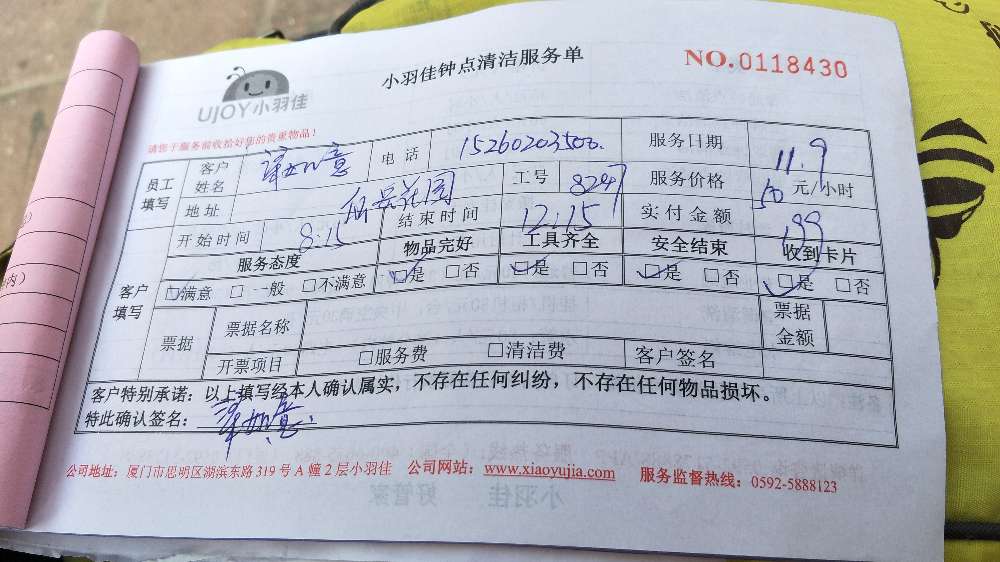 UJOY小羽佳
小羽佳钟点清洁服务单
NO.0118430
请您于服务前收拾好您的贵重物品!
员工填写 客户姓名 如意 电话 15260203500. 服务日期 11.9
地址 花园 工号 8247 服务价格 50 元/小时
开始时间 8:15 结束时间 12:15 实付金额 199
客户填写 服务态度 物品完好 工具齐全 安全结束 收到卡片
☑满意 □一般 □不满意 ☑是 □否 ☑是 □否 ☑是 □否 ☑是 □否
票据 票据名称 票据金额
开票项目 □服务费 □清洁费 客户签名
客户特别承诺:以上填写经本人确认属实,不存在任何纠纷,不存在任何物品损坏。
特此确认签名: 如意
公司地址:厦门市思明区湖滨东路319号A幢2层小羽佳 公司网站:www.xiaoyujia.com 服务监督热线:0592-5888123
小羽佳 好管家